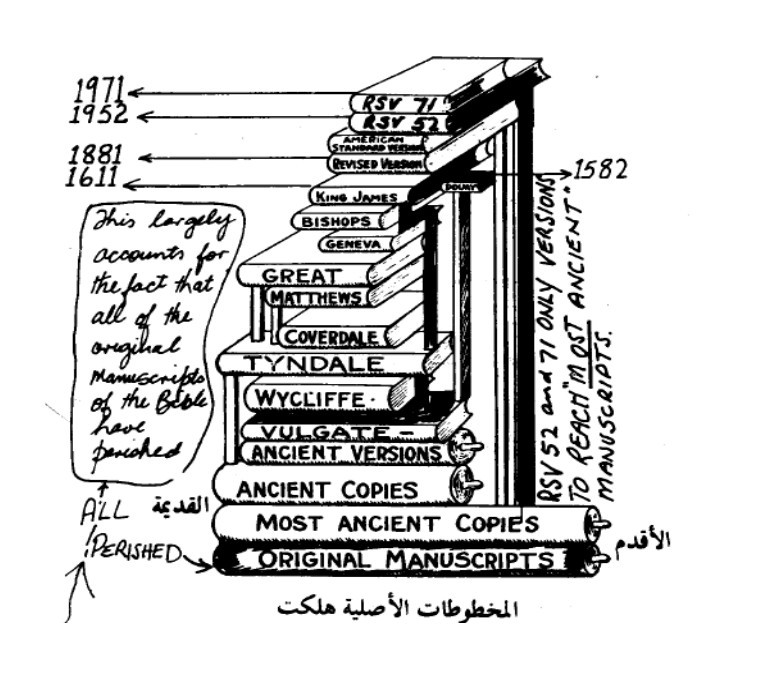 1971
1952
1881
1611
1582
RSV 71
RSV 52
AMERICAN
STANDARD VERSION
REVISED VERSION
KING JAMES
DOUAY
BISHOPS
GENEVA
GREAT
MATTHEWS
COVERDALE
TYNDALE
WYCLIFFE.
VULGATE –
ANCIENT VERSIONS
ANCIENT COPIES
MOST ANCIENT COPIES
ORIGINAL MANUSCRIPTS
This largely
accounts for
the fact that
all of the
original
manuscripts
of the Bible
have
perished
ALL
PERISHED
القديمة
الأقدم
المخطوطات الأصلية هلكت
RSV 52 and 71 ONLY VERSIONS
TO REACH "MOST ANCIENT"
MANUSCRIPTS.